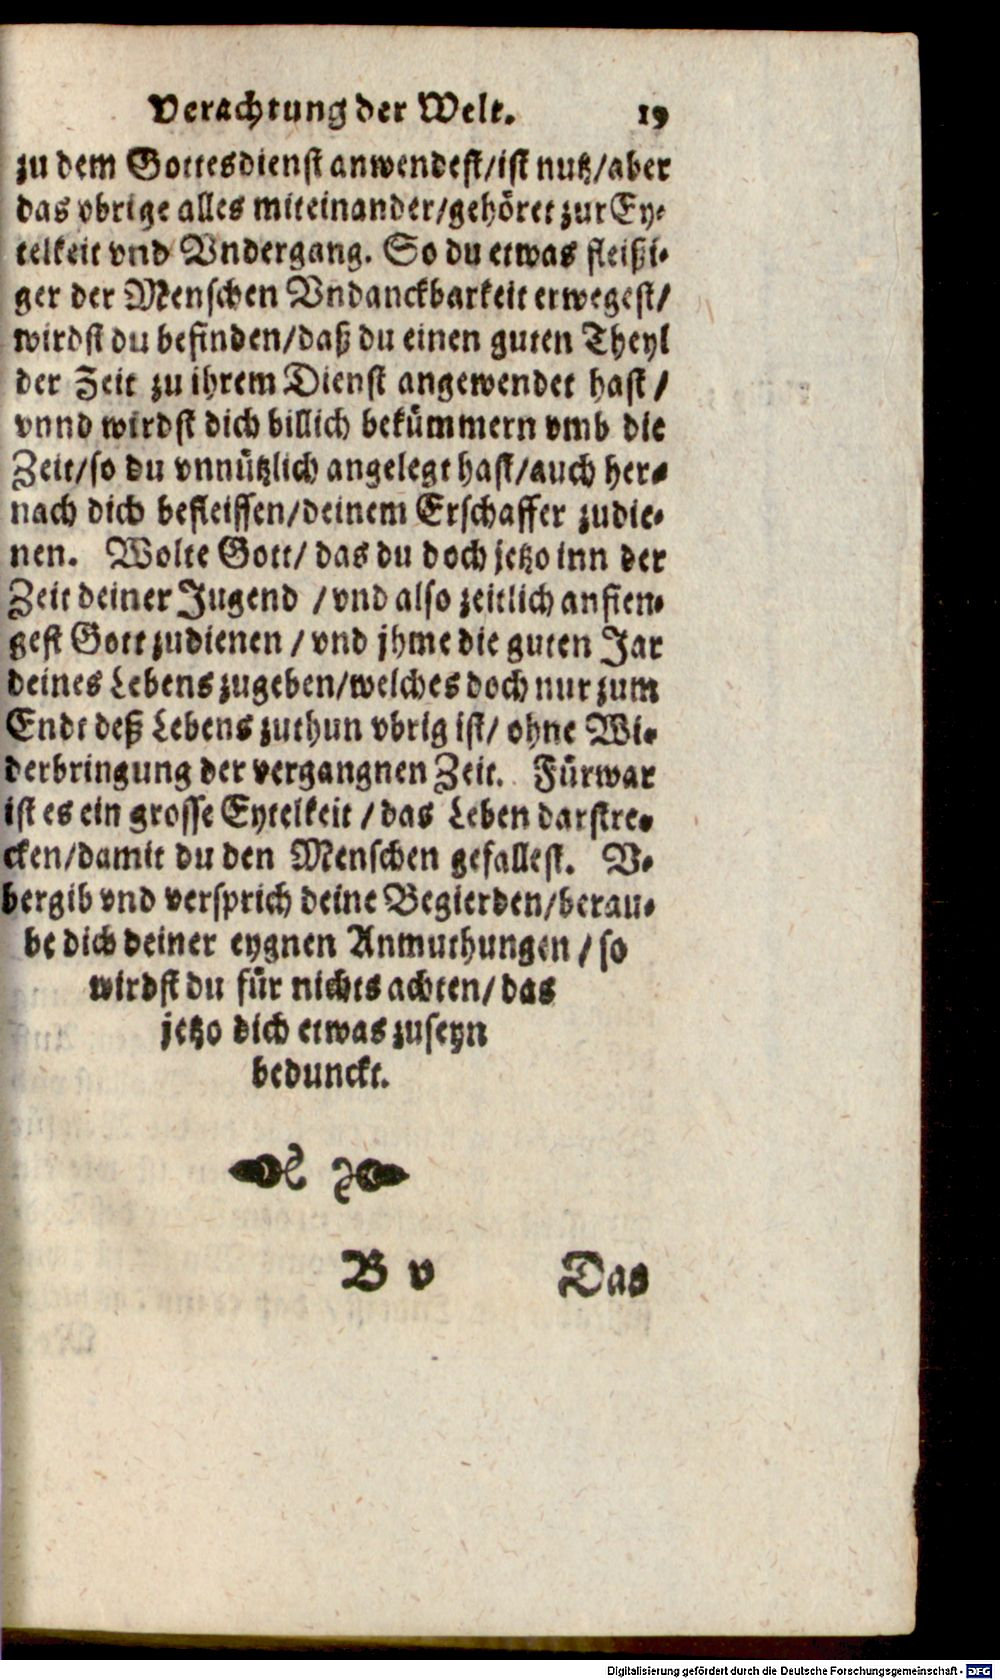 Verachtung der Welt. 19
zu dem Gottesdienst anwendest/ist nutz/aber
das vbrige alles miteinander/gehöret zur Ey-
telkeit vnd Vndergang. So du etwas fleißi-
ger der Menschen Vndanckbarkeit erwegest/
wirdst du befinden/daß du einen guten Theyl
der Zeit zu ihrem Dienst angewendet hast/
vnnd wirdst dich billich bekümmern vmb die
Zeit/so du vnnützlich angelegt hast/auch her-
nach dich befleissen/deinem Erschaffer zudie-
nen. Wolte Gott/ das du doch jetzo inn der
Zeit deiner Jugend / vnd also zeitlich anfien-
gest Gott zudienen / vnd jhme die guten Jar
deines Lebens zugeben/welches doch nur zum
Endt deß Lebens zuthun vbrig ist/ ohne Wi-
derbringung der vergangnen Zeit. Fürwar
ist es ein grosse Eytelkeit / das Leben darstre-
cken/damit du den Menschen gefallest. V-
bergib vnd versprich deine Begierden/berau-
be dich deiner eygnen Anmuthungen / so
wirdst du für nichts achten/ das
jetzo dich etwas zuseyn
bedunckt.
B v Das
Digitalisierung gefördert durch die Deutsche Forschungsgemeinschaft - DFG